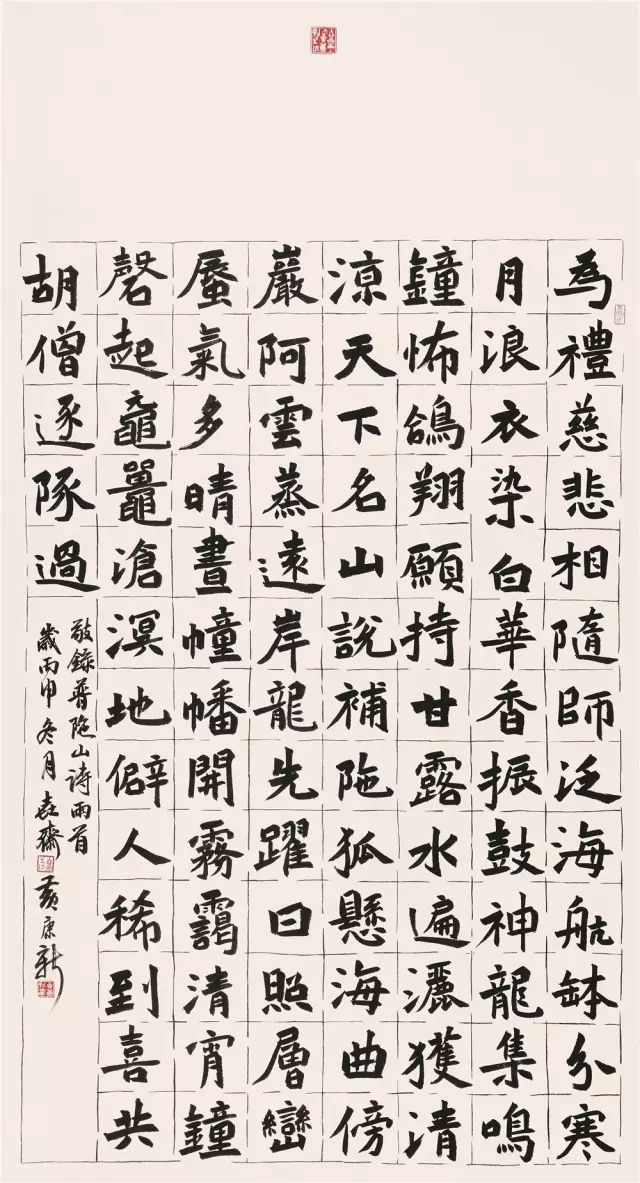 為禮慈悲相隨師泛海航缽分寒
月浪衣染白華香振鼓神龍集鳴
鐘怖鴿翔願持甘露水遍灑獲清
涼天下名山說補陁狐懸海曲傍
巖阿雲蒸遠岸龍先躍日照層巒
蜃氣多晴晝幢幡開霧靄清宵鐘
磬起黿鼉滄溟地僻人稀到喜共
胡僧逐隊過
敬錄普陁山詩兩首
歲丙申冬月 齋 黃康新